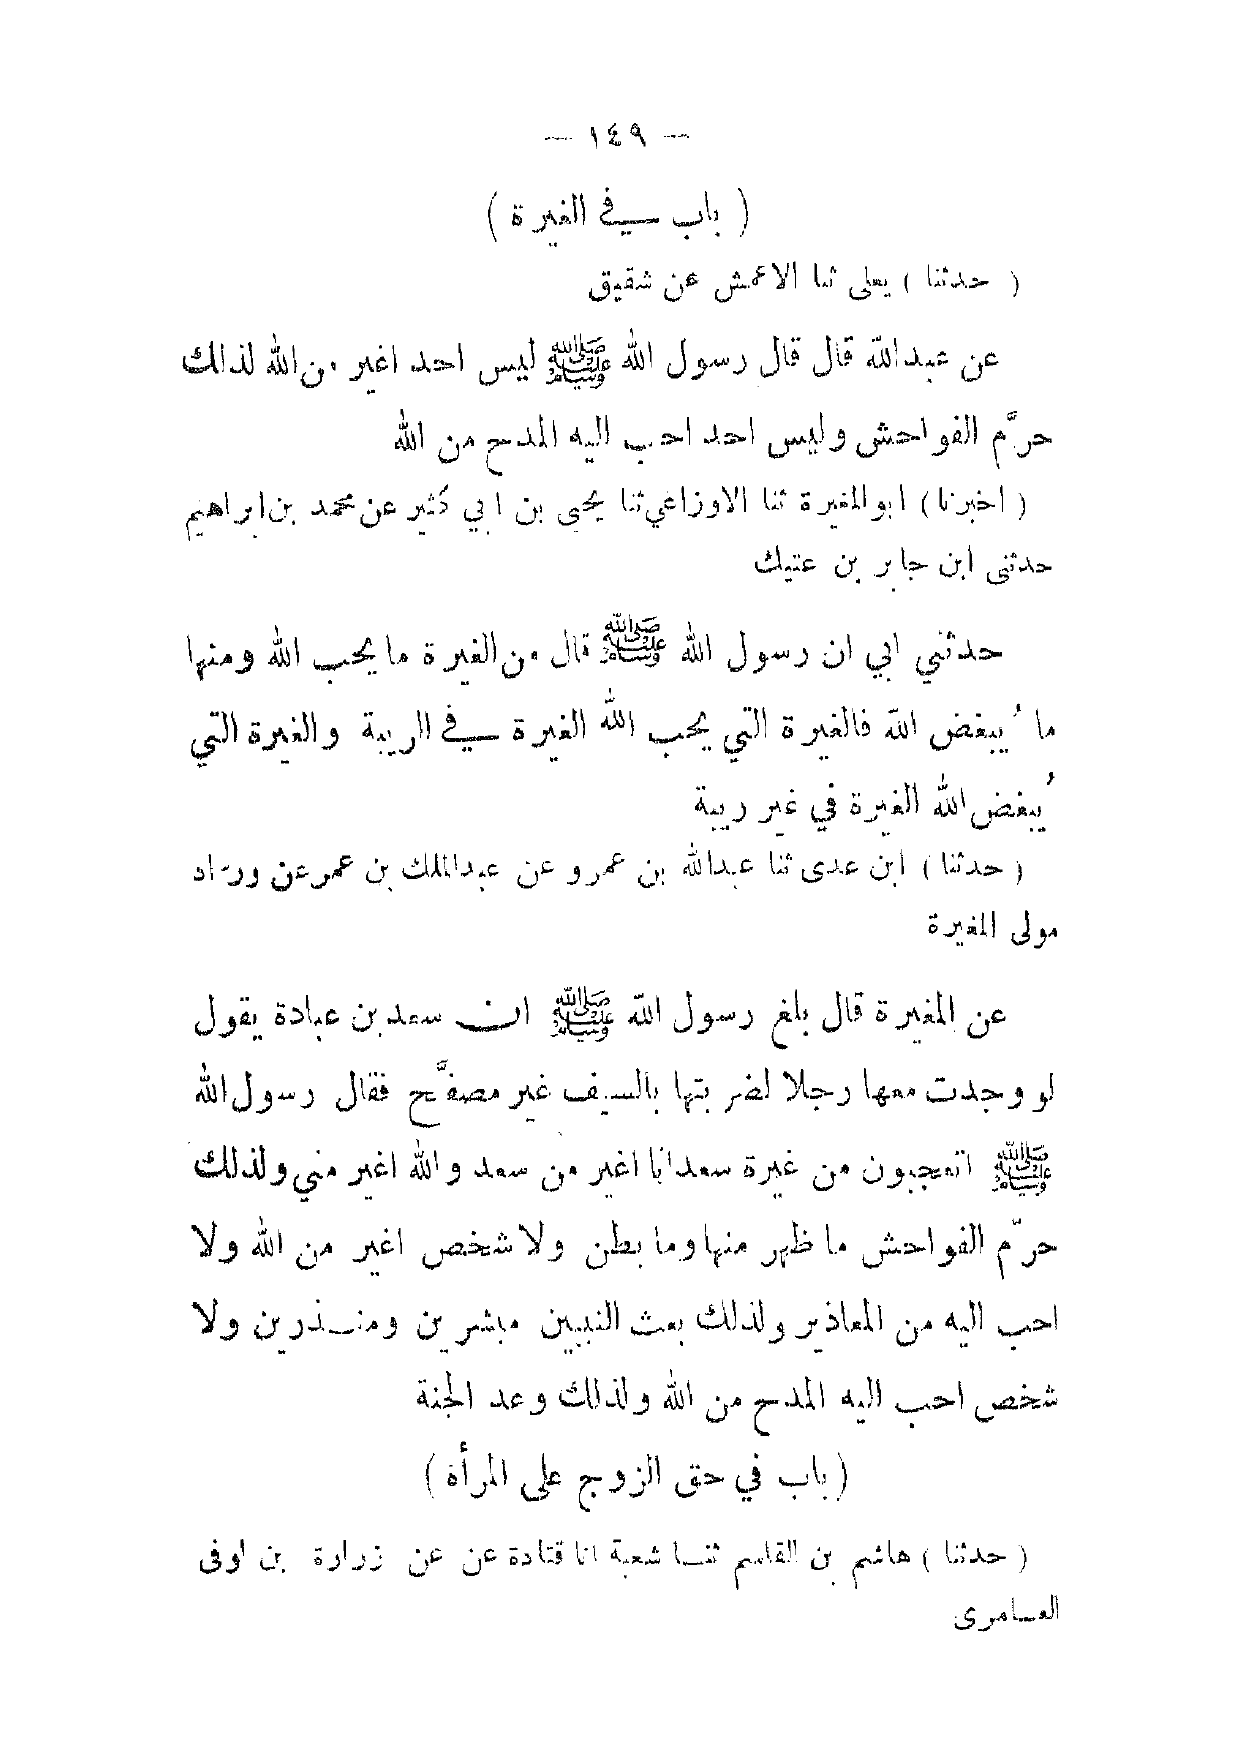 — ١٤٩ —
( باب في الغيرة )
( حدثنا ) يعلى ثنا الاعمش عن شقيق
عن عبدالله قال قال رسول الله ﷺ ليس احد اغير من الله لذلك
حرَّم الفواحش وليس احد احب اليه المدح من الله
( اخبرنا ) ابو المغيرة ثنا الاوزاعي ثنا يحيى بن ابي كثير عن محمد بن ابراهيم
حدثنى ابن جابر بن عتيك
حدثني ابي ان رسول الله ﷺ قال من الغيرة ما يحب الله ومنها
ما يُبغض الله فالغيرة التي يحب الله الغيرة في الريبة والغيرة التي
يُبغض الله الغيرة في غير ريبة
( حدثنا ) ابن عدى ثنا عبدالله بن عمرو عن عبدالملك بن عمر عن ورّاد
مولى المغيرة
عن المغيرة قال بلغ رسول الله ﷺ ان سعد بن عبادة يقول
لو وجدت معها رجلا لضربتها بالسيف غير مصفَّح فقال رسول الله
ﷺ اتعجبون من غيرة سعد انا اغير من سعد والله اغير مني ولذلك
حرّم الفواحش ما ظهر منها وما بطن ولا شخص اغير من الله ولا
احب اليه من المعاذير ولذلك بعث النبيين مبشرين ومنذرين ولا
شخص احب اليه المدح من الله ولذلك وعد الجنة
( باب في حق الزوج على المرأة )
( حدثنا ) هاشم بن القاسم ثنا شعبة انا قتادة عن عن زرارة بن اوفى
العامرى